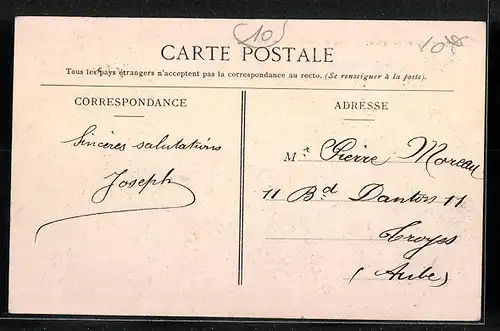 10
10
CARTE POSTALE
Tous les pays étrangers n'acceptent pas la correspondance au recto. (Se renseigner à la poste).
CORRESPONDANCE
Sincères salutations
Joseph
ADRESSE
Mr. Pierre Moreau
11 Bd Danton 11
Troyes
(Aube)